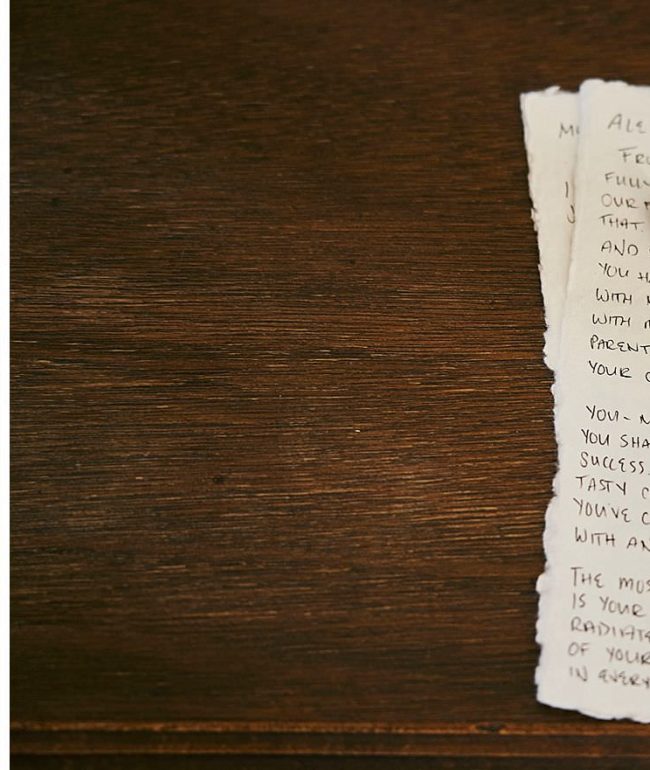 M
ALE
FR
FULLY
OUR
THAT.
AND
YOU HA
WITH
WITH
PARENT
YOUR
YOU - N
YOU SHA
SUCCESS,
TASTY C
YOU'VE C
WITH AN
THE MOS
IS YOUR
RADIATE
OF YOUR
IN EVERY